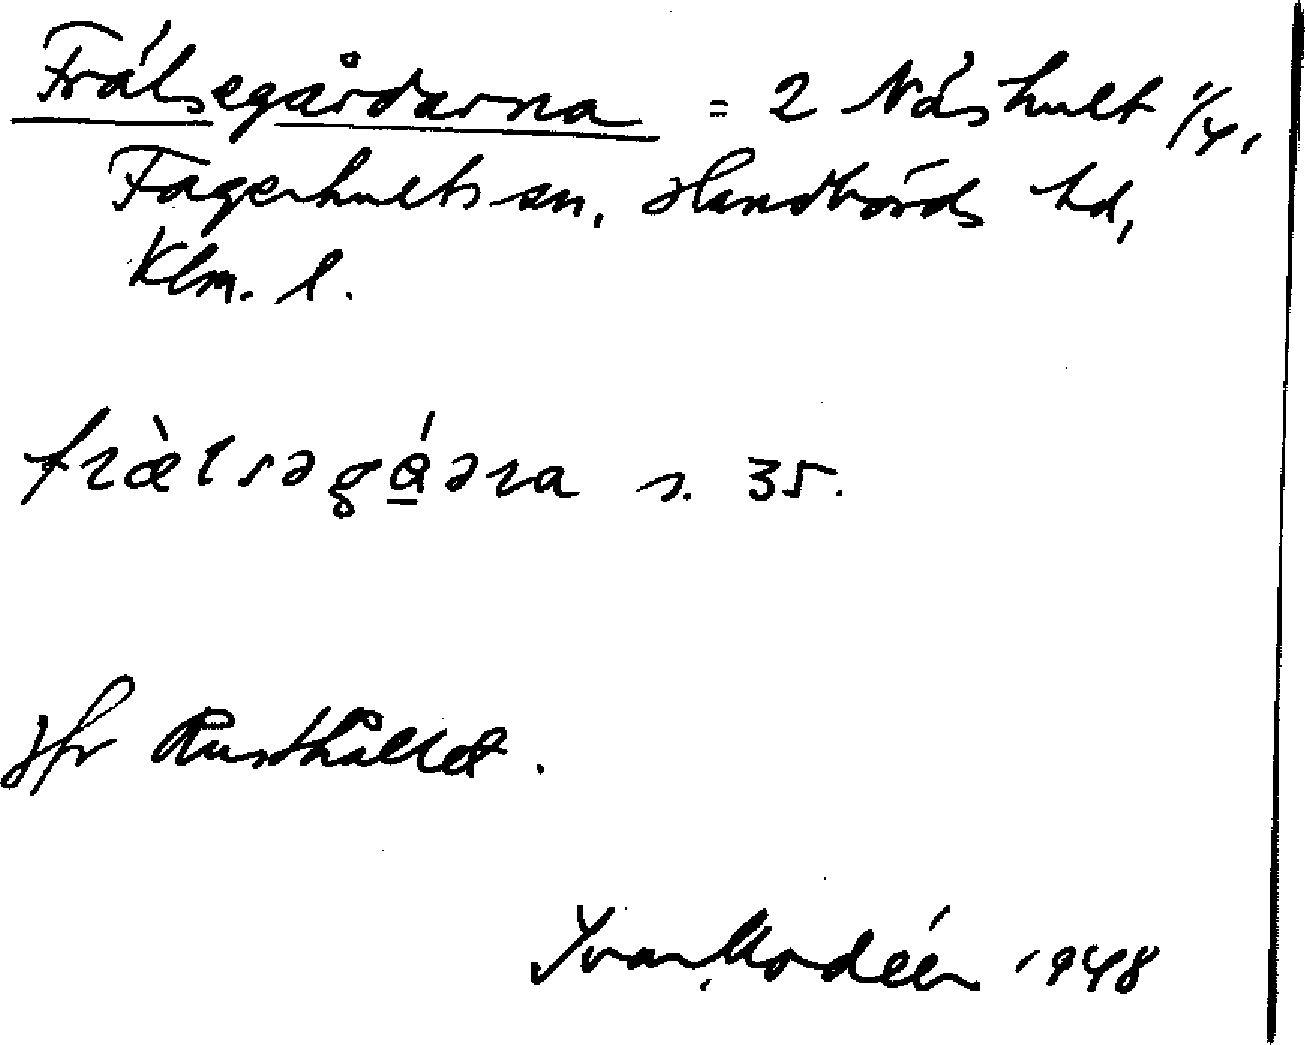 Frälsegårdarna = 2 Näshult 1/4,
Fagerhults sn, Handbörds hd,
Klm. l.
fræ̀lsəgɑ́əra s. 35.
Jfr Rusthållet.
Ivar Modéer 1948